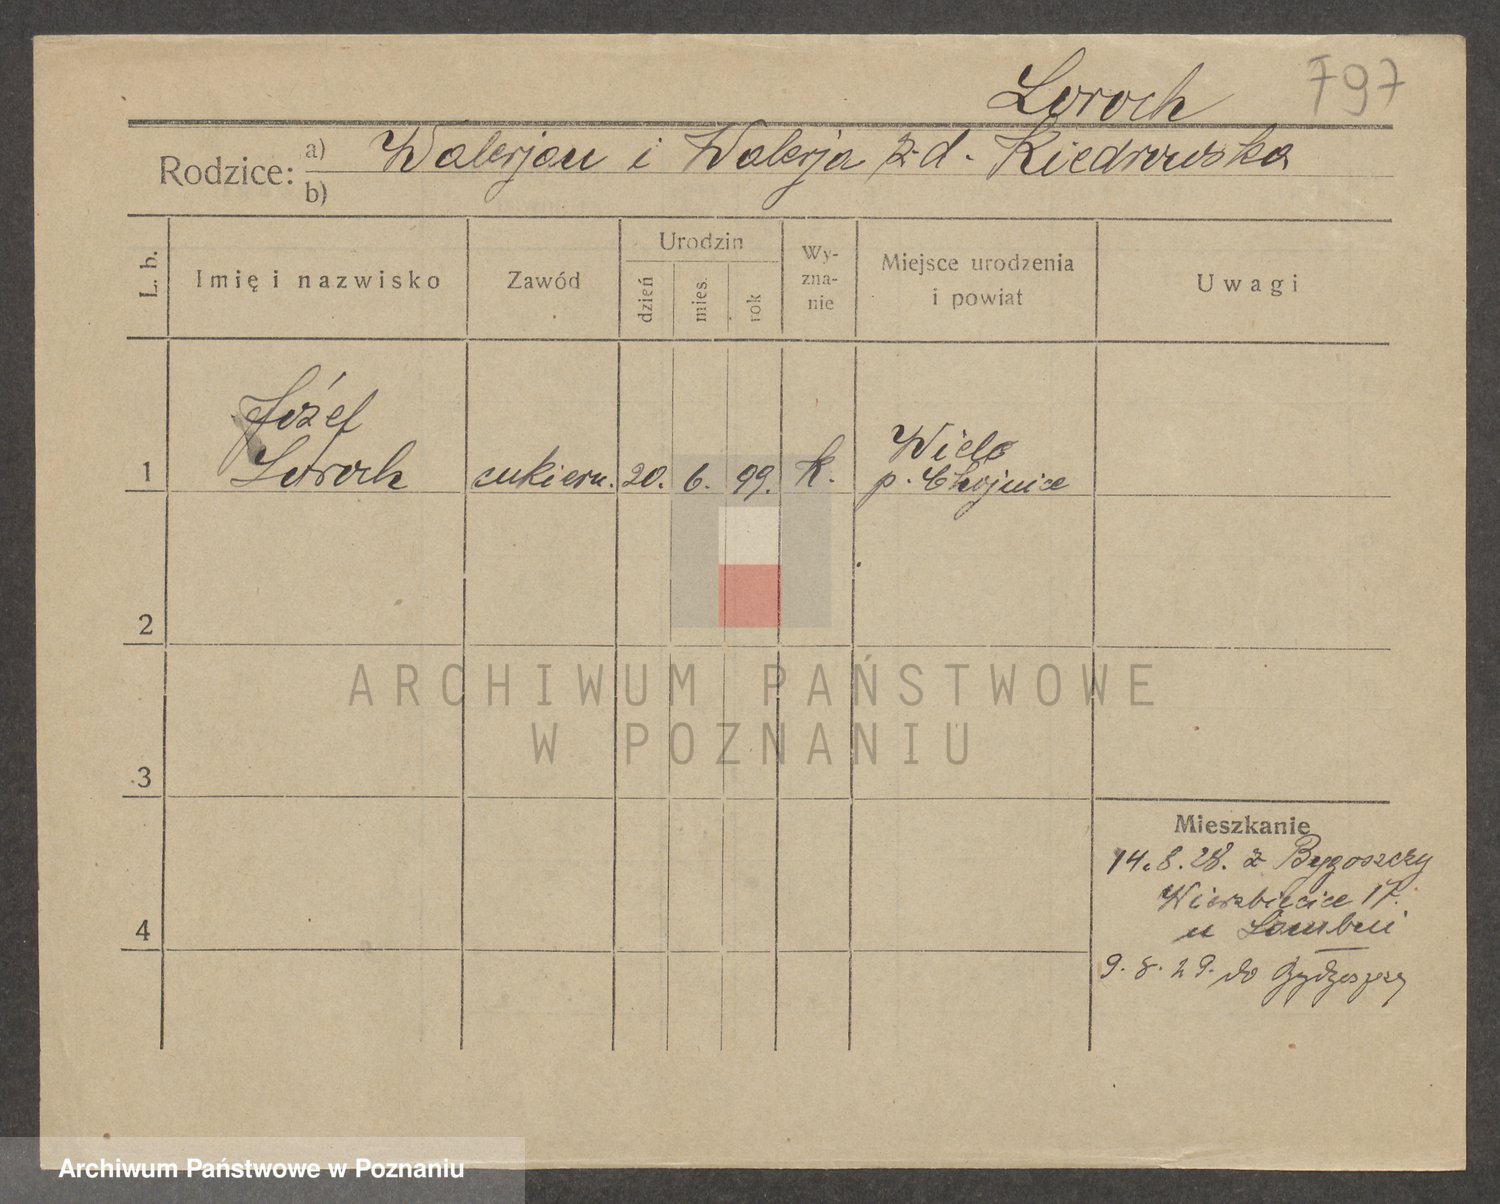 Loroch 797
Rodzice: a) Walerjan i Walerja z d. Kiedrowska
b)
L. b.
Imię i nazwisko
Zawód
Urodzin
dzień
mies.
rok
Wy-
zna-
nie
Miejsce urodzenia
i powiat
Uwagi
Józef
Wiele
1 Loroch cukiern. 20. 6. 99. k. p. Chojnice
2
ARCHIWUM PAŃSTWOWE
W POZNANIU
3
Mieszkanie
14.8.28. z Bygoszczy
Wierzbięcice 17.
4
u
9.8.29. do Bydgoszczy
Archiwum Państwowe w Poznaniu